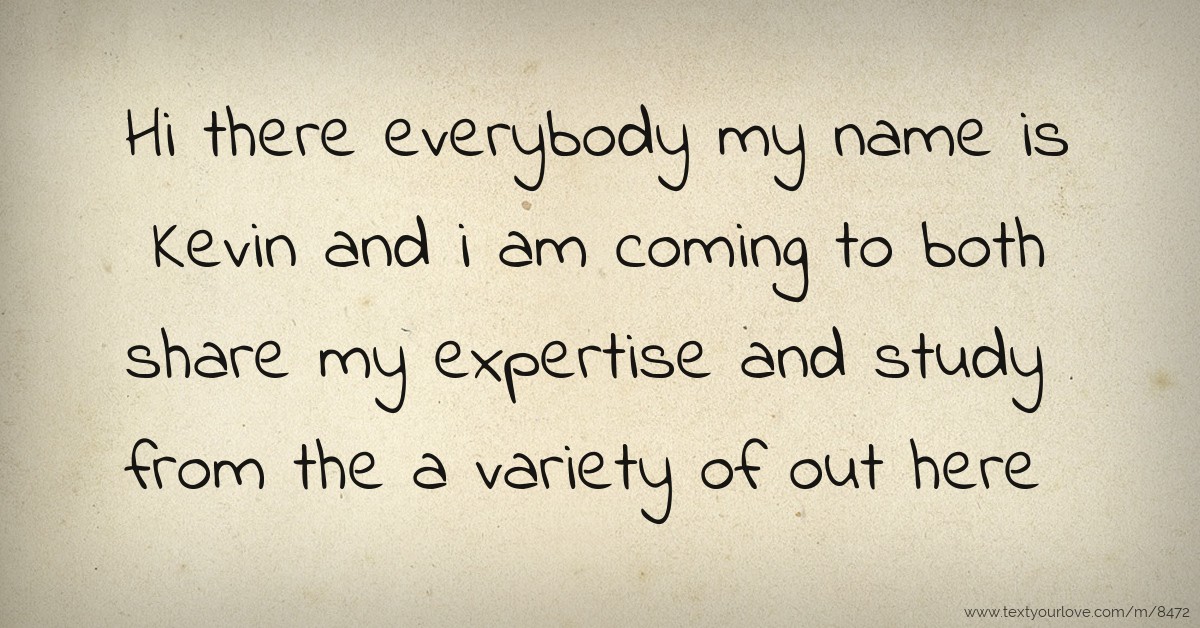 Hi there everybody my name is
Kevin and i am coming to both
share my expertise and study
from the a variety of out here
www.textyourlove.com/m/8472